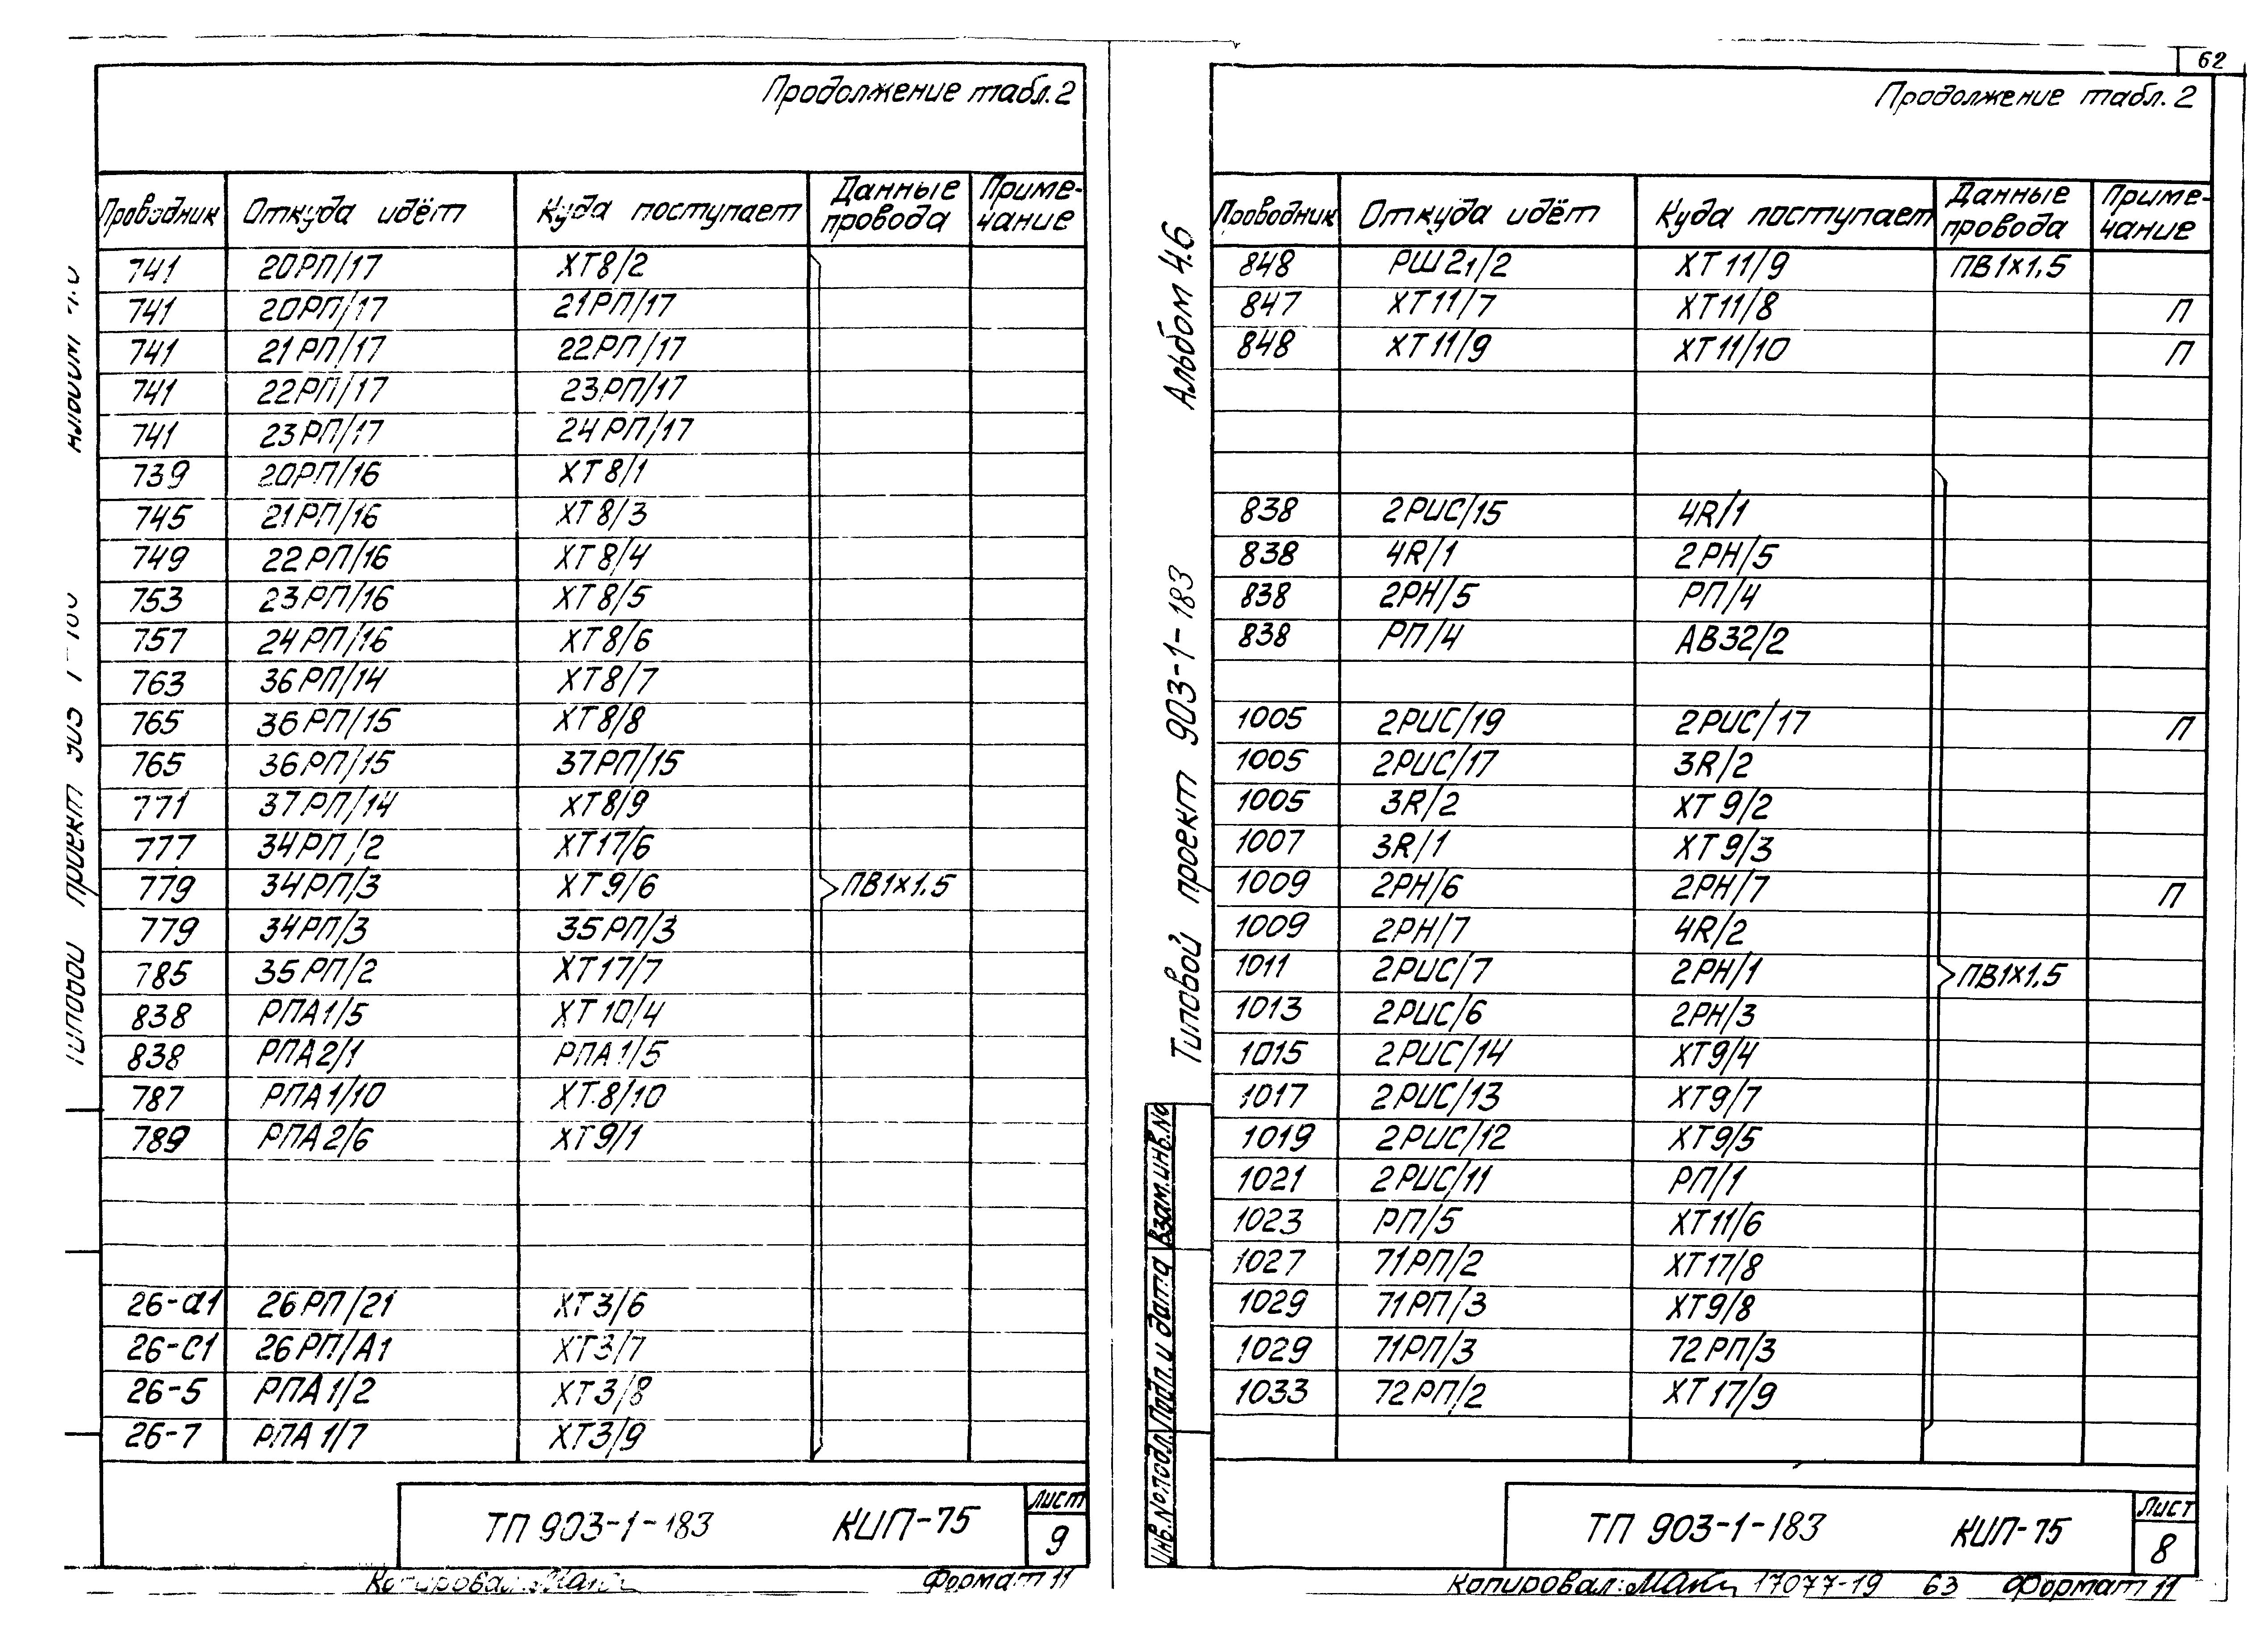 Продолжение табл. 2
Проводник Откуда идёт Куда поступает Данные провода Приме-чание
741 20РП/17 ХТ8/2
741 20РП/17 21РП/17
741 21РП/17 22РП/17
741 22РП/17 23РП/17
741 23РП/17 24РП/17
739 20РП/16 ХТ8/1
745 21РП/16 ХТ8/3
749 22РП/16 ХТ8/4
753 23РП/16 ХТ8/5
757 24РП/16 ХТ8/6
763 36РП/14 ХТ8/7
765 36РП/15 ХТ8/8
765 36РП/15 37РП/15
771 37РП/14 ХТ8/9
777 34РП/2 ХТ17/6
779 34РП/3 ХТ9/6 ПВ1х1.5
779 34РП/3 35РП/3
785 35РП/2 ХТ17/7
838 РПА1/5 ХТ10/4
838 РПА2/1 РПА1/5
787 РПА1/10 ХТ.8/10
789 РПА2/6 ХТ9/1
26-а1 26РП/21 ХТ3/6
26-С1 26РП/А1 ХТ3/7
26-5 РПА1/2 ХТ3/8
26-7 РПА1/7 ХТ3/9
ТП 903-1-183 КИП-75 Лист 9
Формат 11
62
Продолжение табл. 2
Альбом 4.6
Типовой проект 903-1-183
Проводник Откуда идёт Куда поступает Данные провода Приме-чание
848 РШ21/2 ХТ11/9 ПВ1х1,5
847 ХТ11/7 ХТ11/8 П
848 ХТ11/9 ХТ11/10 П
838 2РИС/15 4R/1
838 4R/1 2РН/5
838 2РН/5 РП/4
838 РП/4 АВ32/2
1005 2РИС/19 2РИС/17 П
1005 2РИС/17 3R/2
1005 3R/2 ХТ9/2
1007 3R/1 ХТ9/3
1009 2РН/6 2РН/7 П
1009 2РН/7 4R/2
1011 2РИС/7 2РН/1 ПВ1х1,5
1013 2РИС/6 2РН/3
1015 2РИС/14 ХТ9/4
1017 2РИС/13 ХТ9/7
1019 2РИС/12 ХТ9/5
1021 2РИС/11 РП/1
1023 РП/5 ХТ11/6
1027 71РП/2 ХТ17/8
1029 71РП/3 ХТ9/8
1029 71РП/3 72РП/3
1033 72РП/2 ХТ17/9
Инв.№подл. Подп. и дата Взам.инв.№
ТП 903-1-183 КИП-75 Лист 8
Копировал: 17077-19 63 Формат 11